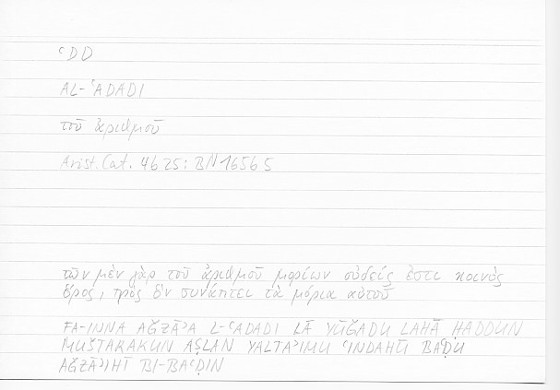 ʿDD
AL-ʿADADI
τοῦ ἀριθμοῦ
Arist. Cat. 4b25: BN 165b5
τῶν μὲν γὰρ τοῦ ἀριθμοῦ μορίων οὐδείς ἐστι κοινὸς
ὅρος, πρὸς ὃν συνάπτει τὰ μόρια αὐτοῦ
FA-INNA AǦZĀʾA L-ʿADADI LĀ YŪǦADU LAHĀ ḤADDUN
MUŠTARAKUN AṢLAN YALTAʾIMU ʿINDAHŪ BAʿḌU
AǦZĀʾIHĪ BI-BAʿḌIN